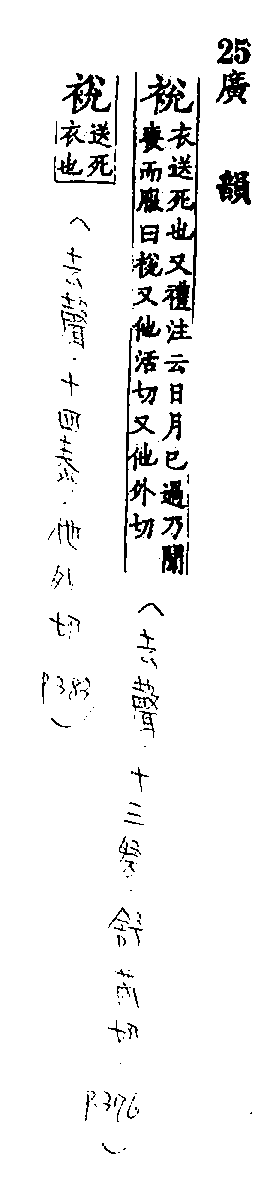 25廣韻
祱衣送死也又禮注云日月已過乃聞
喪而服曰祱又他活切又他外切
(去聲.十三祭.舒芮切.P.376)
祱送死
衣也
(去聲.十四泰.他外切P383)